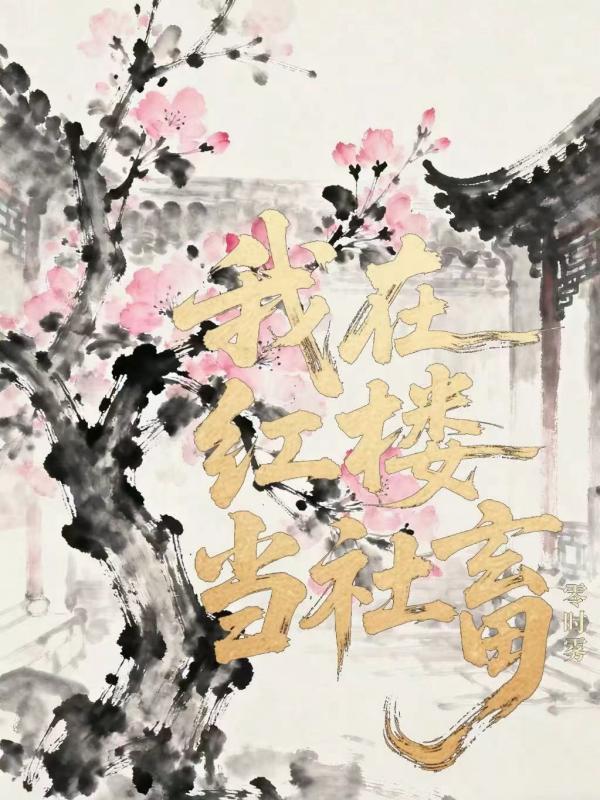 我在
红楼
当社畜
零时雾